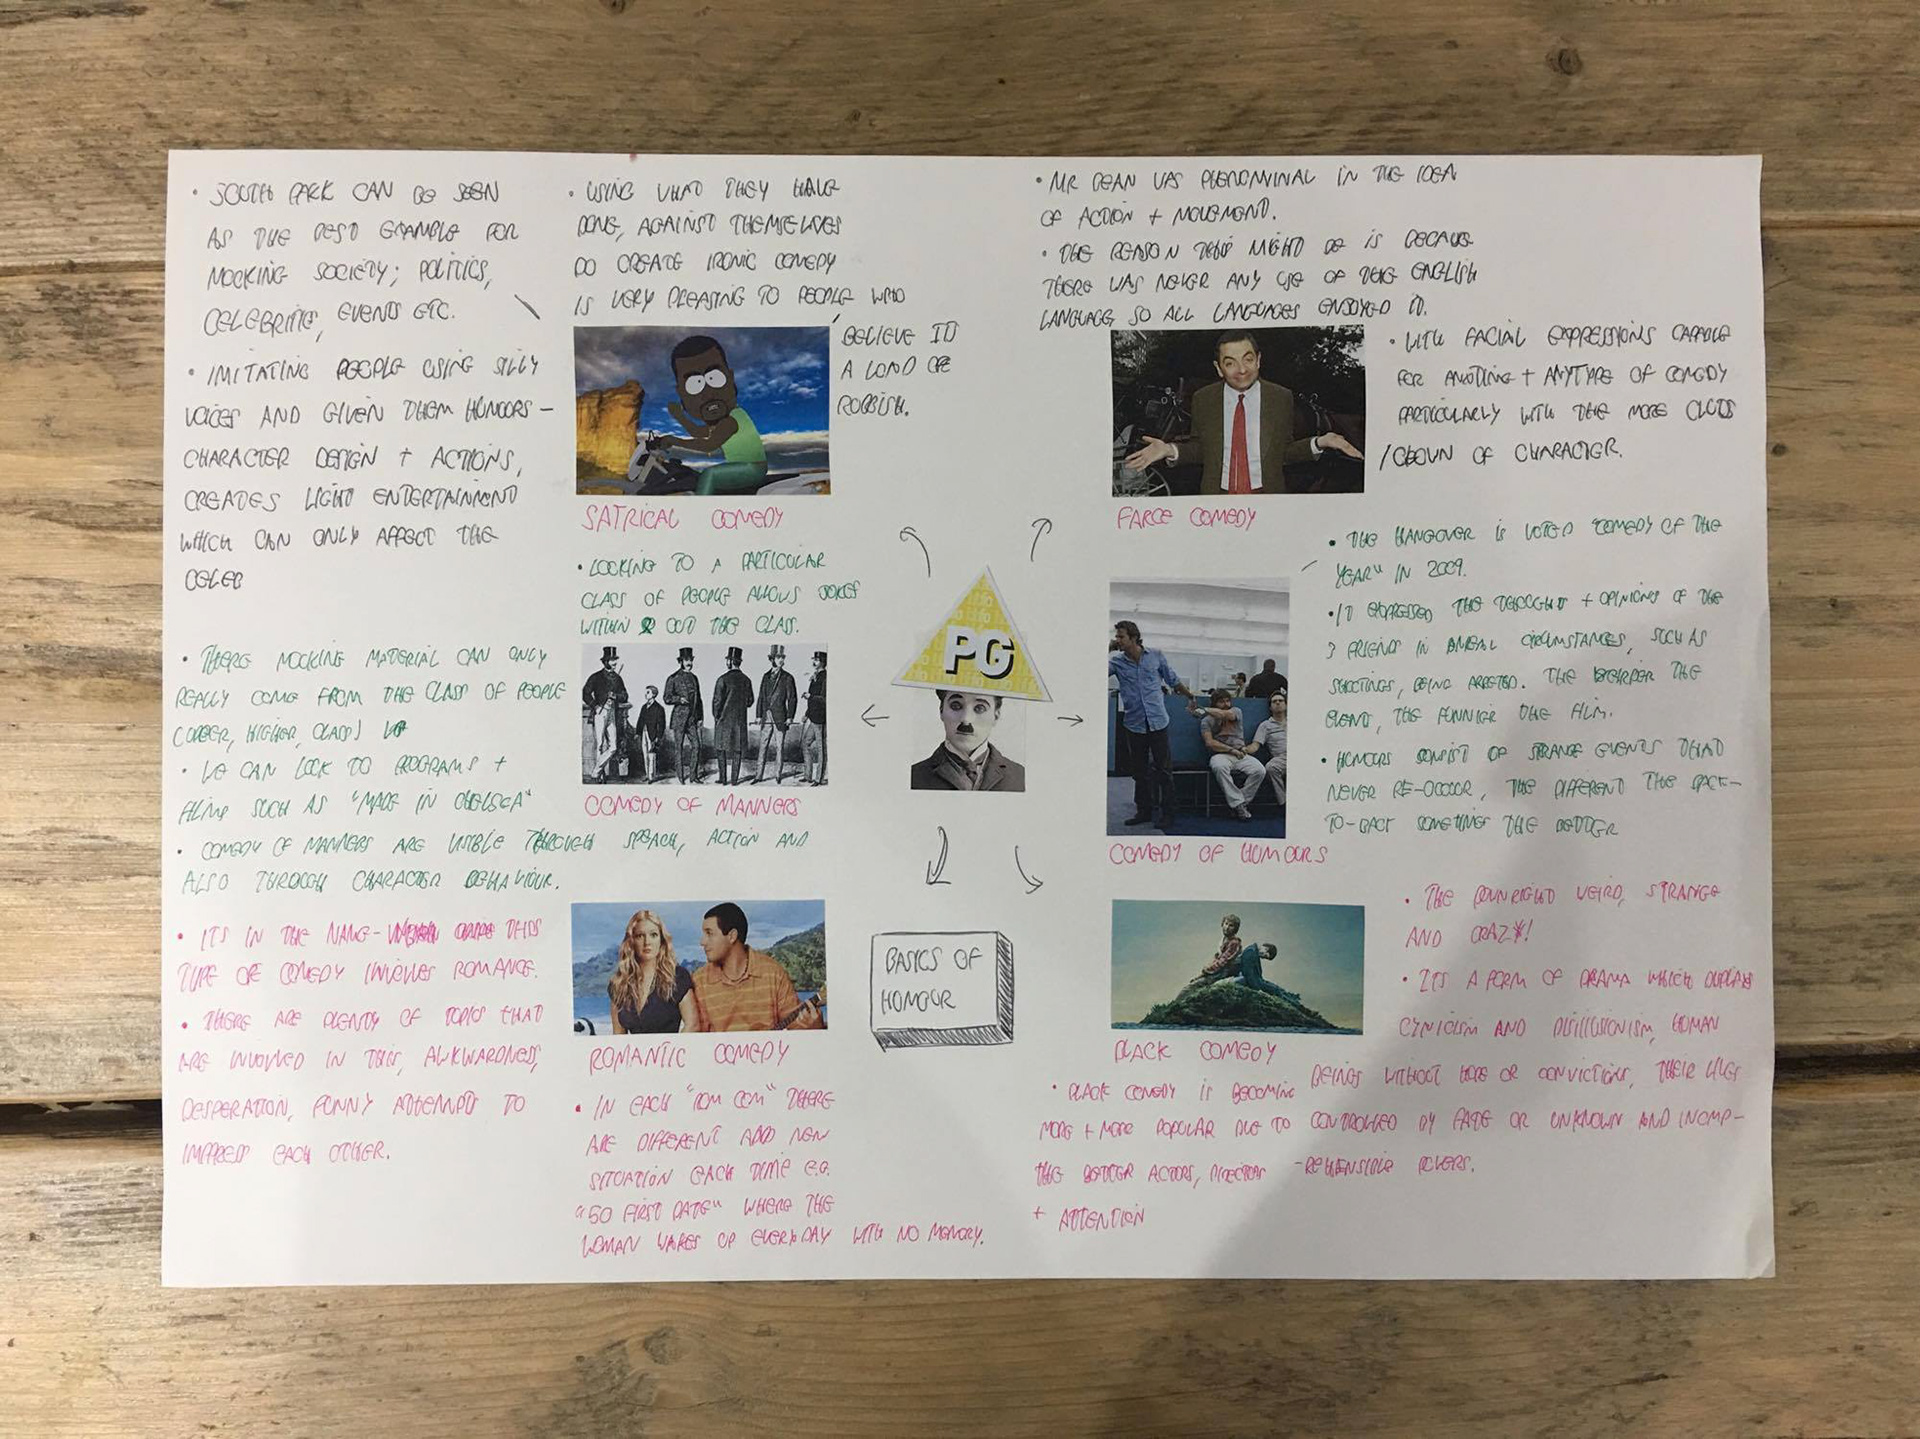 • SOUTH PARK CAN BE SEEN
AS THE BEST EXAMPLE FOR
MOCKING SOCIETY; POLITICS,
CELEBRITIES, EVENTS ETC.
• IMITATING PEOPLE USING SILLY
VOICES AND GIVEN THEM HUMOURS -
CHARACTER DESIGN + ACTIONS,
CREATES LIGHT ENTERTAINMENT
WHICH CAN ONLY AFFECT THE
CELEB
• USING WHAT THEY HAVE
DONE, AGAINST THEMSELVES
TO CREATE IRONIC COMEDY
IS VERY PLEASING TO PEOPLE WHO
BELIEVE ITS
A LOAD OF
RUBBISH.
SATRICAL COMEDY
• MR BEAN WAS PHENOMINAL IN THE IDEA
OF ACTION + MOVEMENT.
• THE REASON THIS MIGHT BE IS BECAUSE
THERE WAS NEVER ANY USE OF THE ENGLISH
LANGUAGE, SO ALL LANGUAGES ENJOYED IT.
• WITH FACIAL EXPRESSIONS CAPABLE
FOR ANYTHING + ANYTYPE OF COMEDY
PARTICULARLY WITH THE MORE
/CLOWN OF CHARACTER.
FARCE COMEDY
• LOOKING TO A PARTICULAR
CLASS OF PEOPLE ALLOWS JOKES
WITHIN OUT THE CLASS.
• THERE MOCKING MATERIAL CAN ONLY
REALLY COME FROM THE CLASS OF PEOPLE
(LOWER, HIGHER, CLASS)
• WE CAN LOOK TO PROGRAMS +
FILMS SUCH AS "MADE IN CHELSEA"
• COMEDY OF MANNERS ARE VISIBLE THROUGH SPEACH, ACTION AND
ALSO THROUGH CHARACTER BEHAVIOUR.
COMEDY OF MANNERS
PG
• THE HANGOVER IS VOTED "COMEDY OF THE
YEAR" IN 2009.
• IT EXPRESSED THE THOUGHT + OPINIONS OF THE
3 FRIENDS IN CIRCUMSTANCES, SUCH AS
SHOOTINGS, BEING ARRESTED. THE THE
EVENT, THE FUNNIER THE FILM.
• HUMOURS CONSIST OF STRANGE EVENTS THAT
NEVER RE-OCCUR, THE DIFFERENT THE BACK-
TO-BACK SOMETHINGS THE BETTER
COMEDY OF HUMOURS
• ITS IN THE NAME - THIS
TYPE OF COMEDY INVOLVES ROMANCE.
• THERE ARE PLENTY OF TOPICS THAT
ARE INVOLVED IN THIS, AWKWARDNESS,
DESPERATION, FUNNY ATTEMPTS TO
IMPRESS EACH OTHER.
ROMANTIC COMEDY
• IN EACH "ROM COM" THERE
ARE DIFFERENT ADD NEW
SITUATION EACH TIME E.G.
"50 FIRST DATE" WHERE THE
WOMAN WAKES UP EVERYDAY WITH NO MEMORY.
BASICS OF
HUMOUR
BLACK COMEDY
• THE DOWNRIGHT WEIRD, STRANGE
AND CRAZY!
• ITS A FORM OF DRAMA WHICH DISPLAYS
CYNICISM AND DISILLUSIONISM, HUMAN
BEINGS WITHOUT HOPE OR CONVICTIONS, THEIR LIVES
CONTROLLED BY FATE OR UNKNOWN AND INCOMP-
-REHENSIBLE POWERS.
• BLACK COMEDY IS BECOMING
MORE + MORE POPULAR DUE TO
THE BETTER ACTORS, DIRECTORS
+ ATTENTION